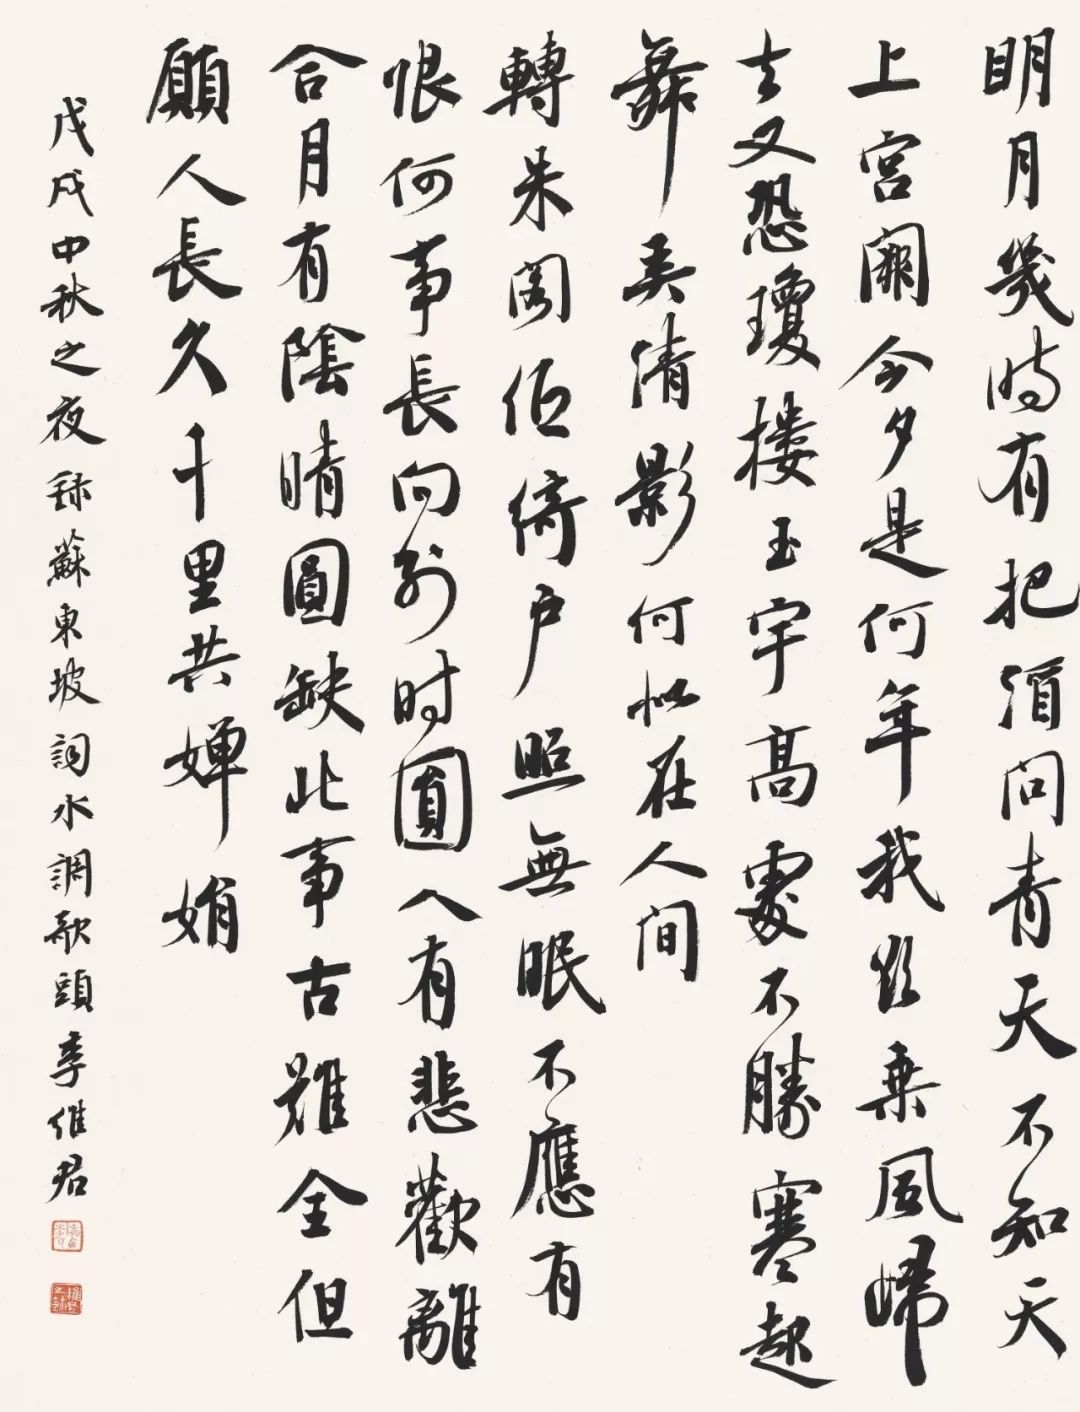 明月幾時有把酒問青天不知天
上宮闕今夕是何年我欲乘風歸
去又恐瓊樓玉宇高處不勝寒起
舞弄清影何似在人間
轉朱閣低綺戶照無眠不應有
恨何事長向別時圓人有悲歡離
合月有陰晴圓缺此事古難全但
願人長久千里共嬋娟
戊戌中秋之夜錄蘇東坡詞水調歌頭季惟君